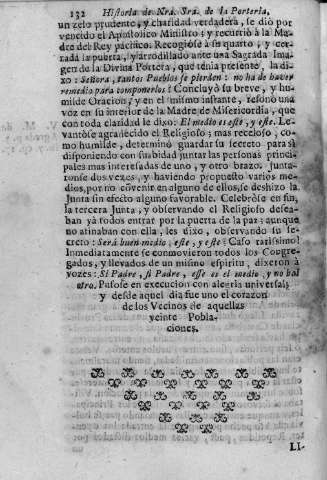 132 Historia de Nra. Sra. de la Porteria.
un zelo prudente, y charidad verdadera, se dió por
vencido el Apostolico Ministro: y recurrió à la Ma-
dre del Rey pacifico. Recogióse à su quarto, y cer-
rada la puerta, y arrodillado ante una Sagrada Ima-
gen de la Divina Portera, que tenia presente, la di-
xo: Señora, tantos Pueblos se pierden: no ha de haver
remedio para componerlos? Concluyó su breve, y hu-
milde Oracion, y en el mismo instante, resonó una
voz en su interior de la Madre de Misericordia, que
con toda claridad le dixo: El medio es este, y este. Le-
vantóse agradecido el Religioso; mas receloso, co-
mo humilde, determinó guardar su secreto para sí
disponiendo con suavidad juntar las personas princi-
pales mas interesadas de uno, y otro brazo. Junta-
ronse dos vezes, y haviendo propuesto varios me-
dios, por no cõvenir en alguno de ellos, se deshizo la
Junta sin efecto alguno favorable. Celebróse en fin,
la tercera Junta, y observando el Religioso desea-
ban yà todos entrar por la puerta de la paz: aunque
no atinaban con ella, les dixo, observando su se-
creto: Será buen medio, este, y este? Caso rarissimo!
Inmediatamente se conmovieron todos los Congre-
gados, y llevados de un mismo espiritu, dixeron à
vozes: Si Padre, si Padre, esse es el medio, y no hai
otro. Pusose en execucion con alegria universal;
y desde aquel dia fue uno el corazon
de los Vecinos de aquellas
veinte Pobla-
ciones.
LI-